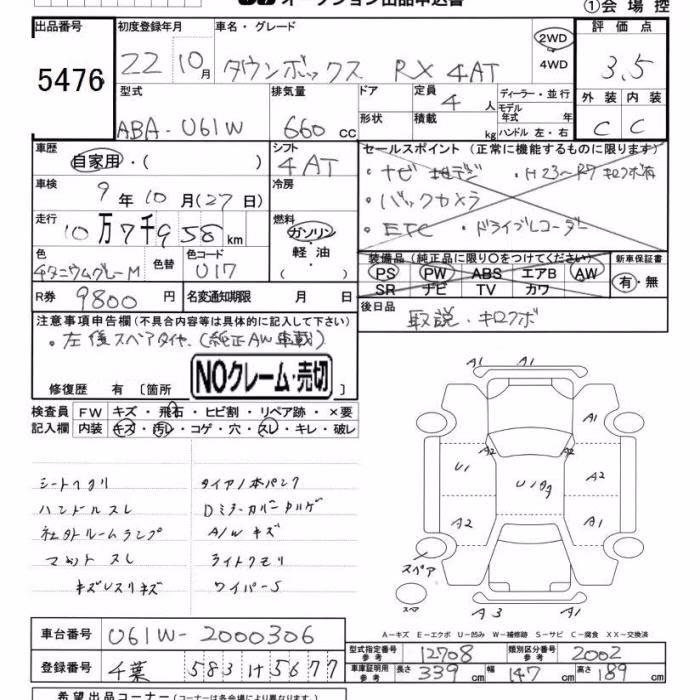 オークション出品申込書
①会場控
出品番号 初度登録年月 車名・グレード 評価点
5476 22 10月 タウンボックス RX 4AT 2WD 4WD 3.5
型式 排気量 ドア 定員 ディーラー・並行 外装 内装
ABA-U61W 660cc 形状 4人 積載 kg モデル年式 年式 ハンドル 左・右 C C
車歴 シフト セールスポイント(正常に機能するものに限ります)
自家用・( ) 4AT ・ナビ 地デジ ・H23~R7 キロクボ有
車検 冷房 ・バックカメラ
9年10月(27日)
走行 燃料 ・ETC ・ドライブレコーダー
10万7千958km ガソリン・軽油( )
色 色替 色コード 装備品(純正品に限り○をつけてください) 新車保証書
チタニウムグレーM U17 PS PW ABS エアB AW 有・無
SR ナビ TV カワ
R券 9800円 名変通知期限 月 日 後日品
取説・キロクボ
注意事項申告欄(不具合内容等は具体的に記入して下さい)
・左後スペアタイヤ(純正AW車載)
NOクレーム・売切
修復歴 有[箇所 ]
検査員 FW キズ・飛石・ヒビ割・リペア跡・×要
記入欄 内装 キズ・汚レ・コゲ・穴・スレ・キレ・破レ
A1 A1
A1
A2 A2
U1 A2
Uクタ
A2 A1
シートヘタリ タイヤ1本パンク
ハンドルスレ Dミラーカバー
社外ルームランプ A/Wキズ
マットスレ ライトクモリ
キズUスリキズ ワイパーS
スペア
スペア
A3 A1
A-キズ E-エクボ U-凹み W-補修跡 S-サビ C-腐食 XX-交換済
車台番号 U61W-2000306
型式指定番号 参考 12708 類別区分番号 参考 2002
登録番号 千葉 583 け 5677
車庫証明用 参考 長さ 339cm 幅 147cm 高さ 189cm
希望出品コーナー(コーナーは各会場により異なります)